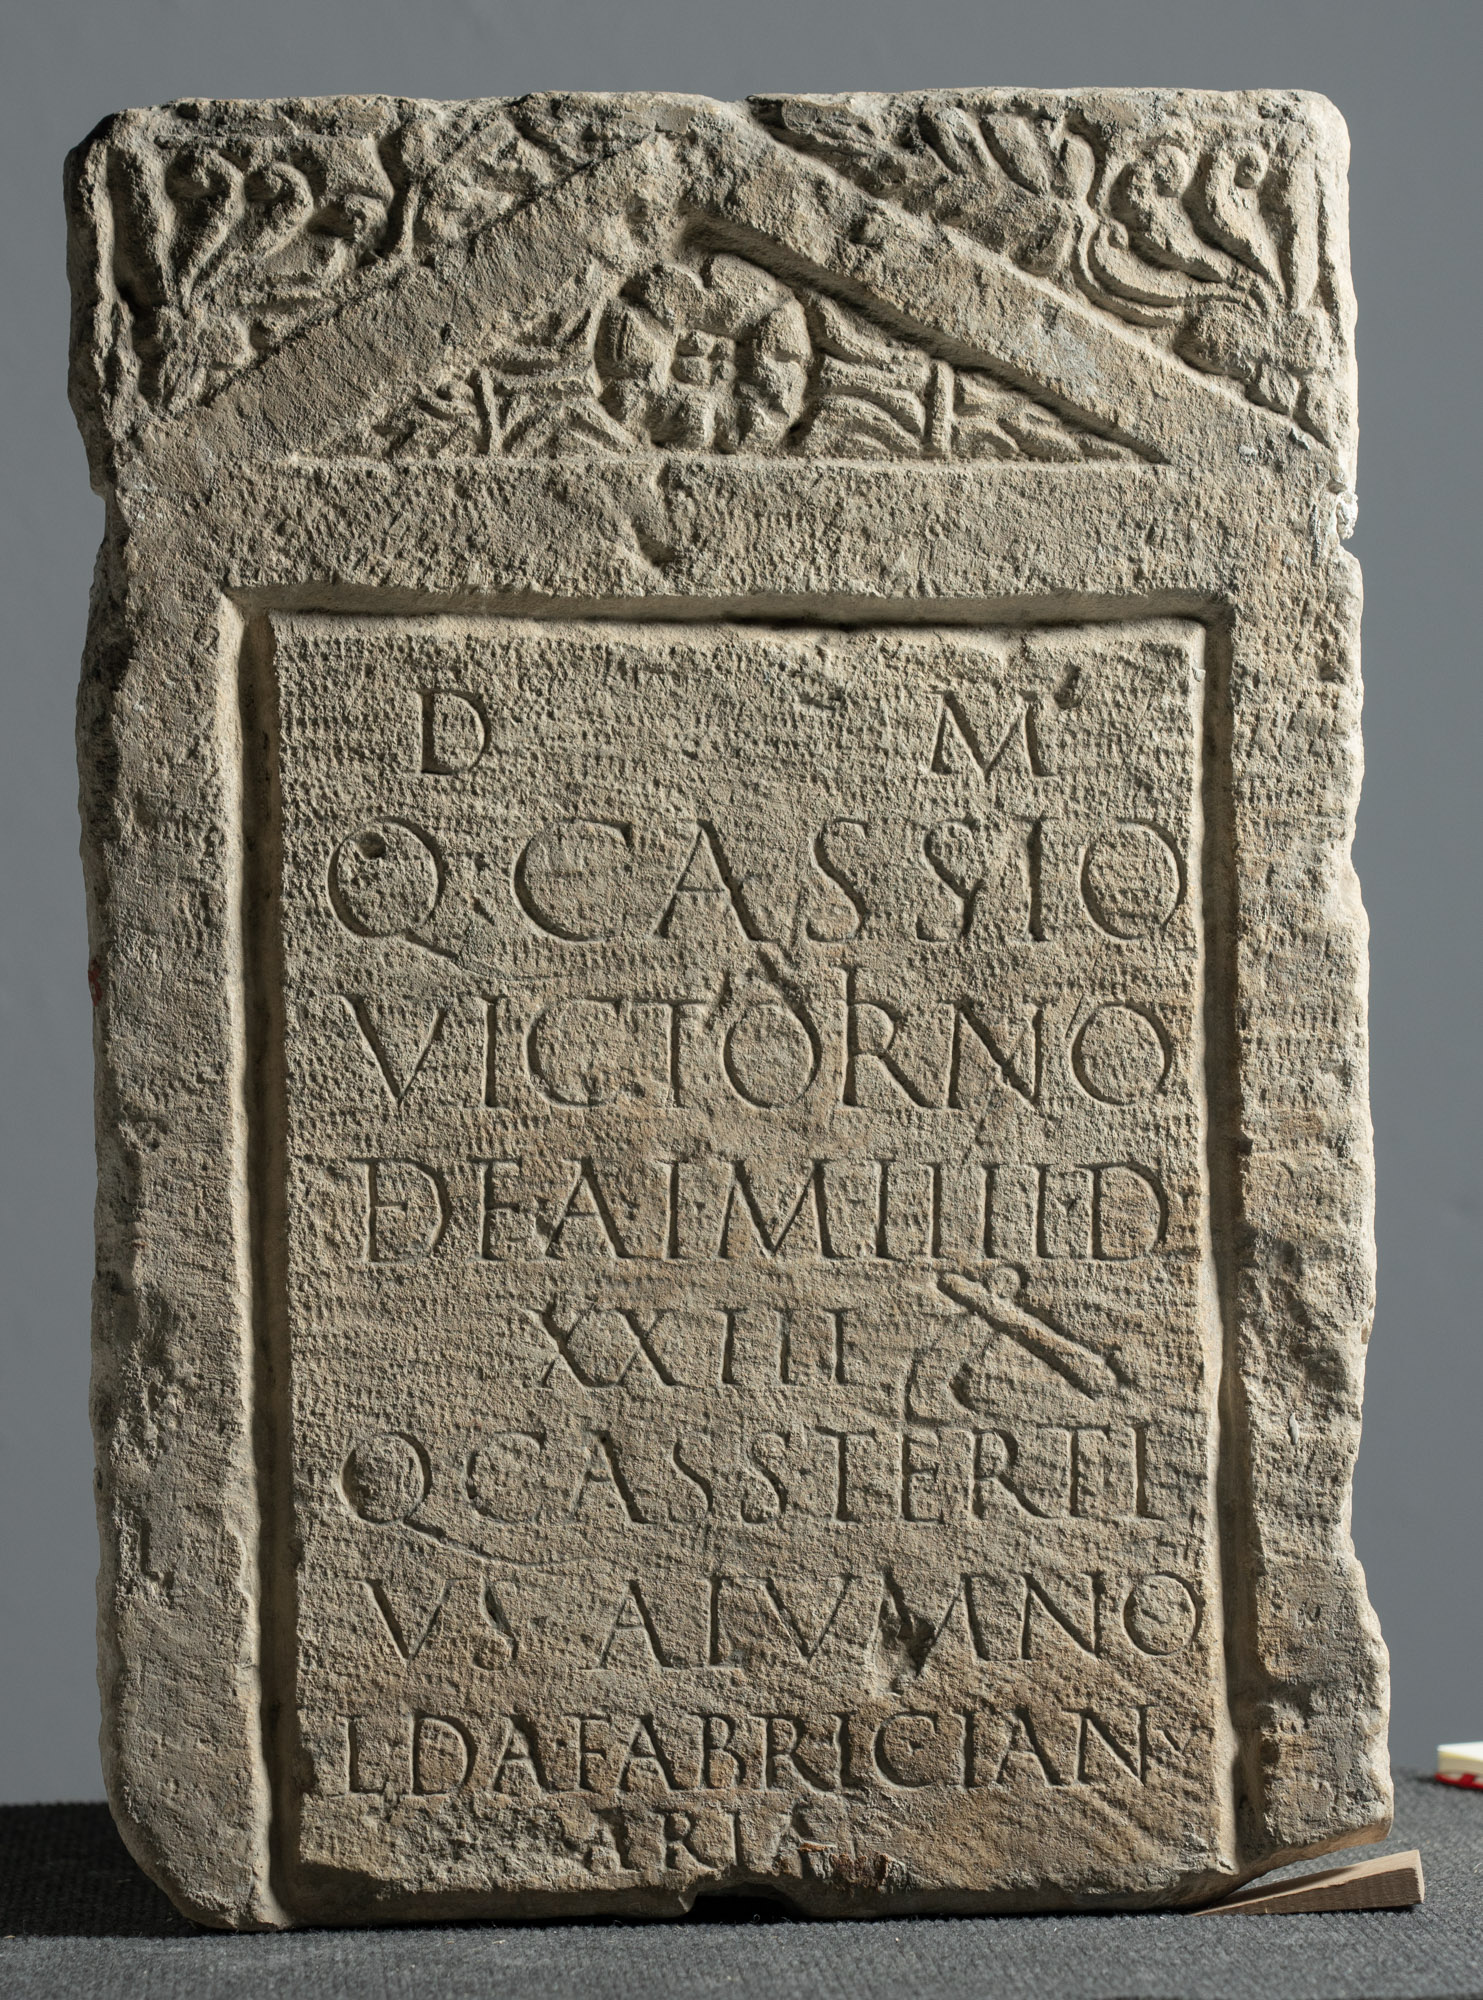 D M
Q CASSIO
VICTORNO
DEAIMIIIID
XXIII
Q CASSTERTI
VS AIVMNO
LDAFABRICIAN
ARIA